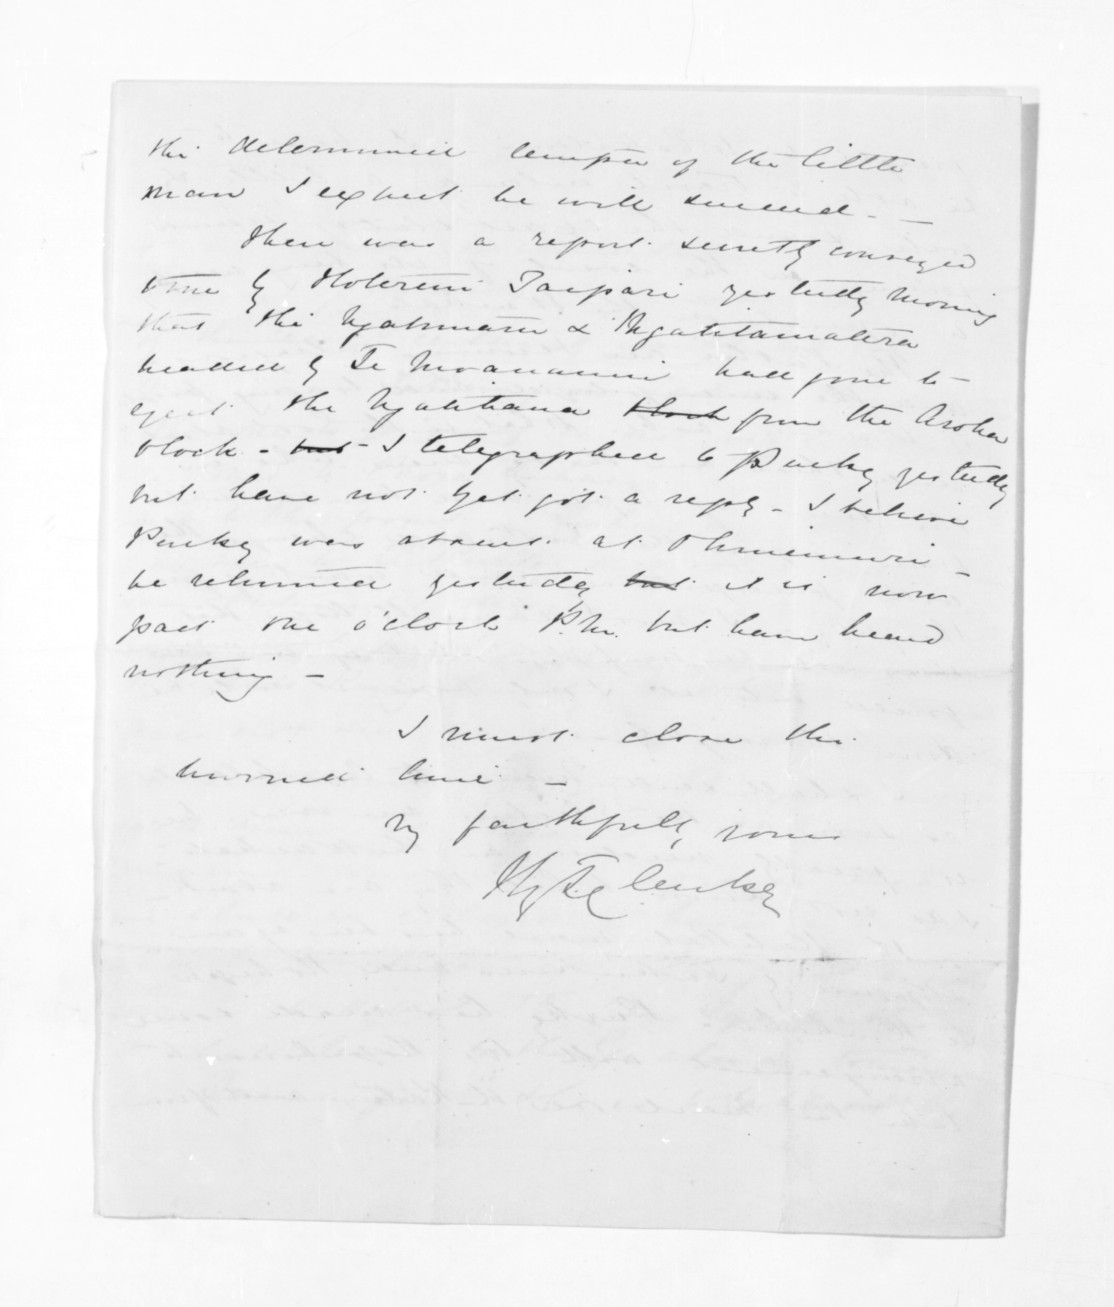 the determined temper of the little
man I expect he will succeed. —
There was a report secretly conveyed
to me by Hoterini Taipari yesterday morning
that the Ngatimaru & Ngatitamatera
headed by Te Moananui had gone to
eject the Ngatihaua block from the Aroha
block - but - I telegraphed to Puckey yesterday
but have not yet got a reply - I believe
Puckey was absent at Ohinemuri -
he returned yesterday but it is now
past one o'clock P.M. but have heard
nothing -
I must close this
hurried line -
Vy faithfully yours
Hy T Clarke